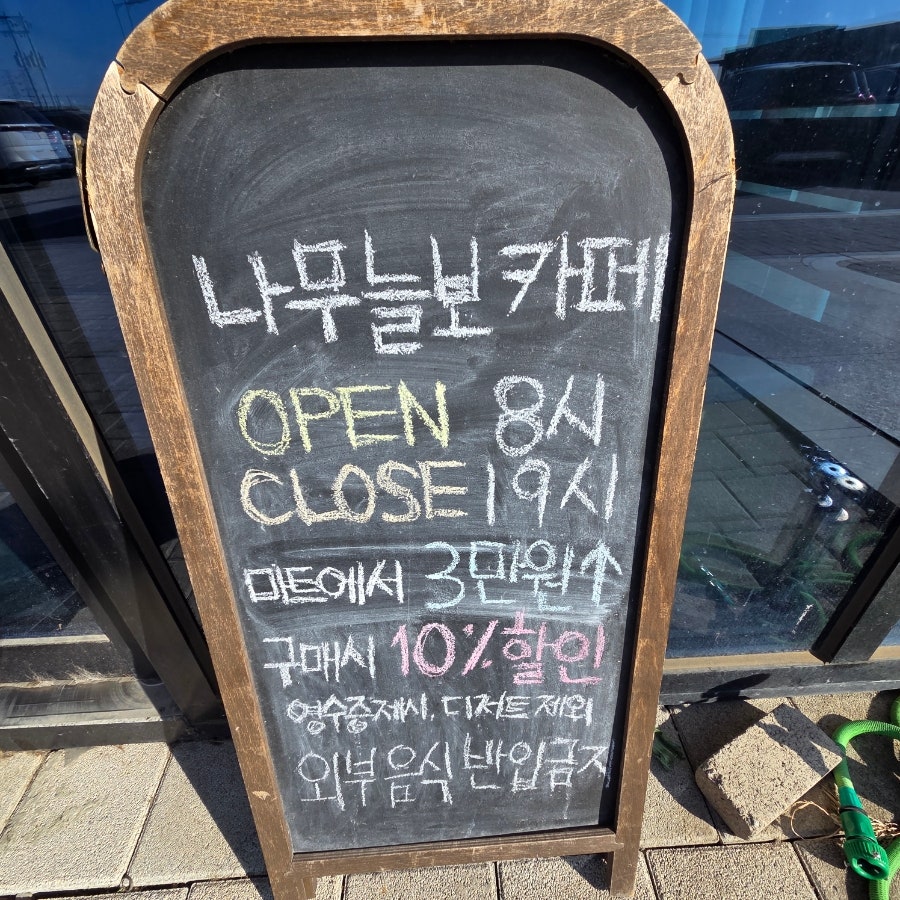 나무늘보 카페
OPEN 8시
CLOSE 19시
마트에서 3만원↑
구매시 10% 할인
영수증제시, 디저트 제외
외부 음식 반입금지